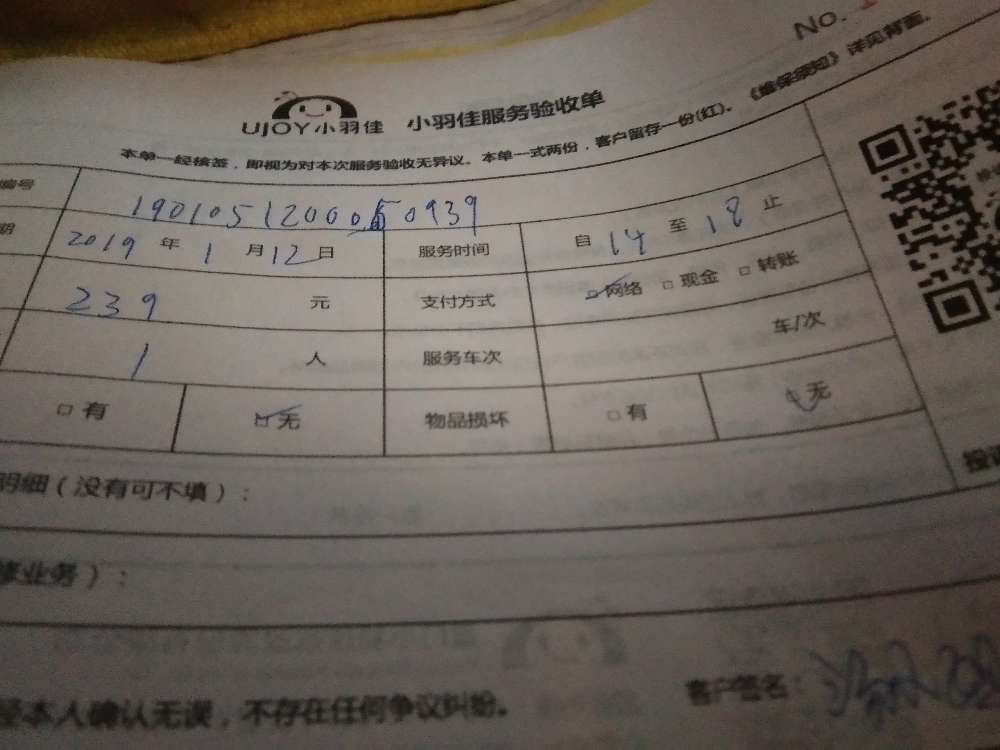 No.
UJOY小羽佳 小羽佳服务验收单
本单一经接签，即视为对本次服务验收无异议。本单一式两份，客户留存一份(红)。《维保须知》详见背面。
编号 190105120005 0939
期 2019 年 1 月 12 日 服务时间 自 14 至 18 止
239 元 支付方式 □网络 □现金 □转账
1 人 服务车次 车/次
□有 □无 物品损坏 □有 □无
明细（没有可不填）：
业务）：
经本人确认无误，不存在任何争议纠纷。
客户签名：